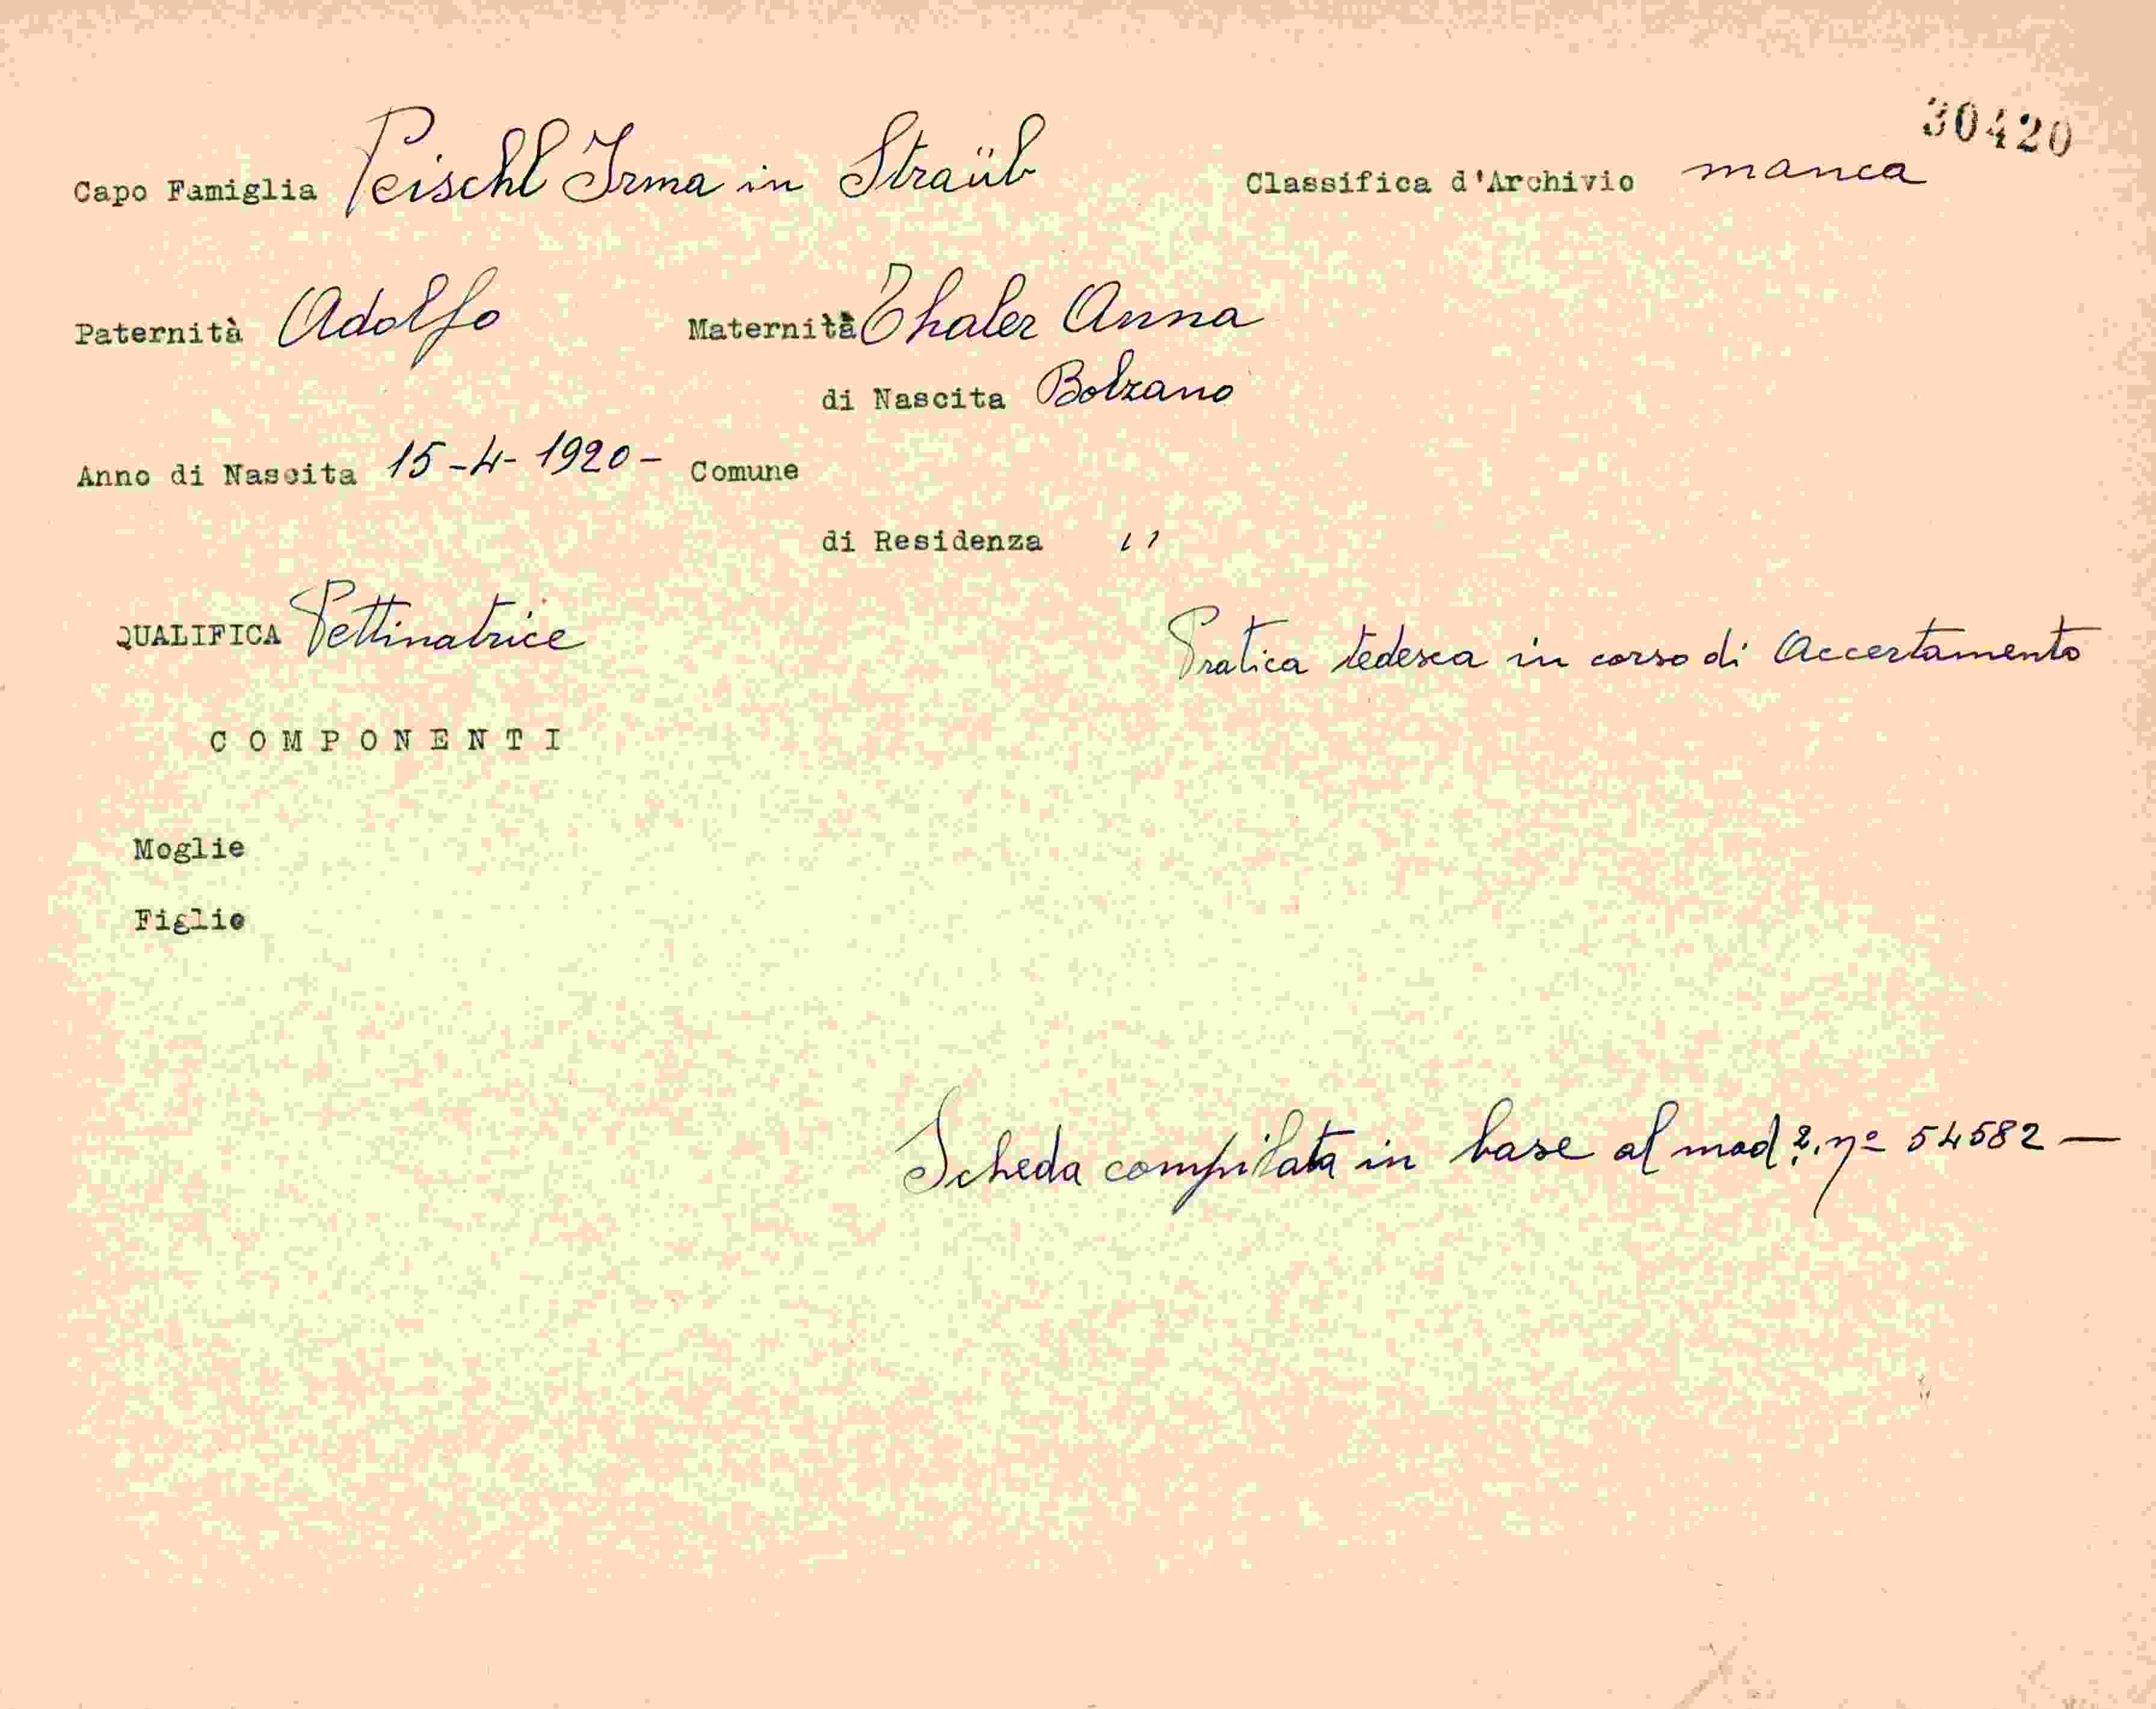 30420
Capo Famiglia Peischl Irma in Straüb Classifica d'Archivio manca
Paternità Adolfo Maternità Thaler Anna
di Nascita Bolzano
Anno di Nascita 15-4-1920- Comune
di Residenza "
QUALIFICA Pettinatrice Pratica tedesca in corso di Accertamento
COMPONENTI
Moglie
Figlio
Scheda compilata in base al mod. nº 54582 —